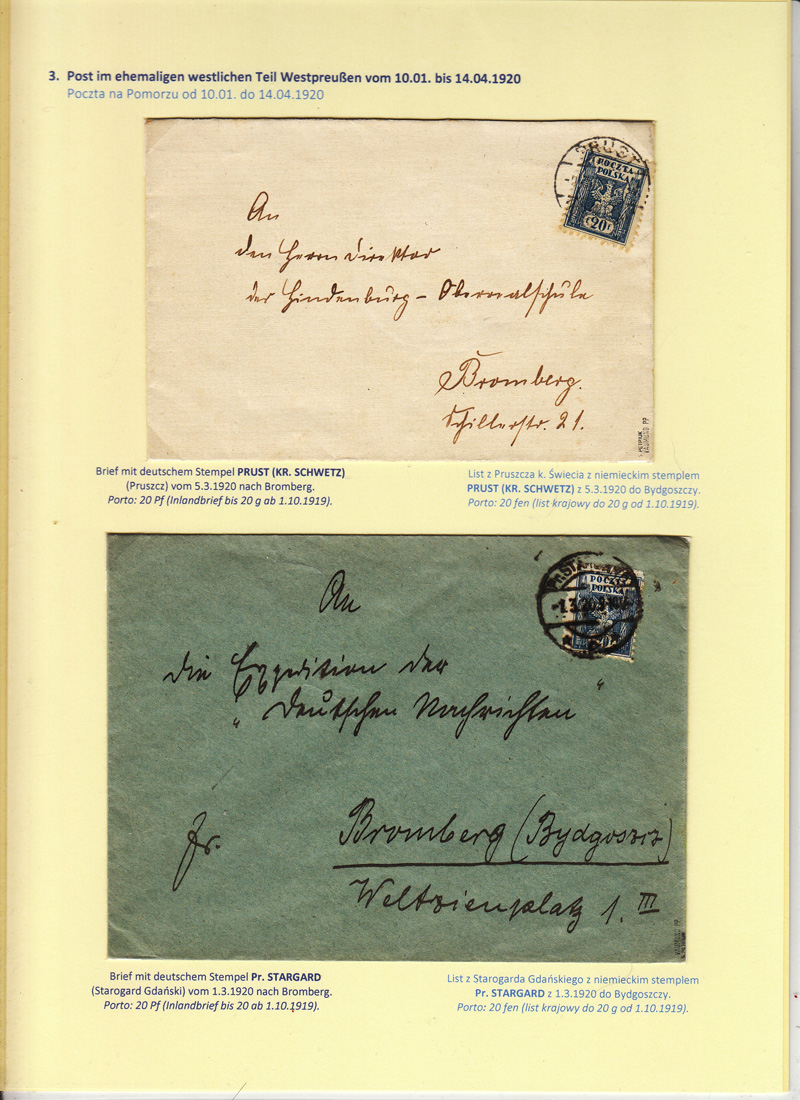 3. Post im ehemaligen westlichen Teil Westpreußen vom 10.01. bis 14.04.1920
Poczta na Pomorzu od 10.01. do 14.04.1920
PRUST
POCZTA
POLSKA
20 F
An
den Herrn Direktor
der Hindenburg - Oberrealschule
Bromberg.
Schillerstr. 21.
Brief mit deutschem Stempel PRUST (KR. SCHWETZ)
(Pruszcz) vom 5.3.1920 nach Bromberg.
Porto: 20 Pf (Inlandbrief bis 20 g ab 1.10.1919).
List z Pruszcza k. Świecia z niemieckim stemplem
PRUST (KR. SCHWETZ) z 5.3.1920 do Bydgoszczy.
Porto: 20 fen (list krajowy do 20 g od 1.10.1919).
POCZTA
POLSKA
An
die Expedition der
"Deutschen Nachrichten"
fr.
Bromberg (Bydgoszcz)
Weltzienplatz 1. III
Brief mit deutschem Stempel Pr. STARGARD
(Starogard Gdański) vom 1.3.1920 nach Bromberg.
Porto: 20 Pf (Inlandbrief bis 20 ab 1.10.1919).
List z Starogarda Gdańskiego z niemieckim stemplem
Pr. STARGARD z 1.3.1920 do Bydgoszczy.
Porto: 20 fen (list krajowy do 20 g od 1.10.1919).